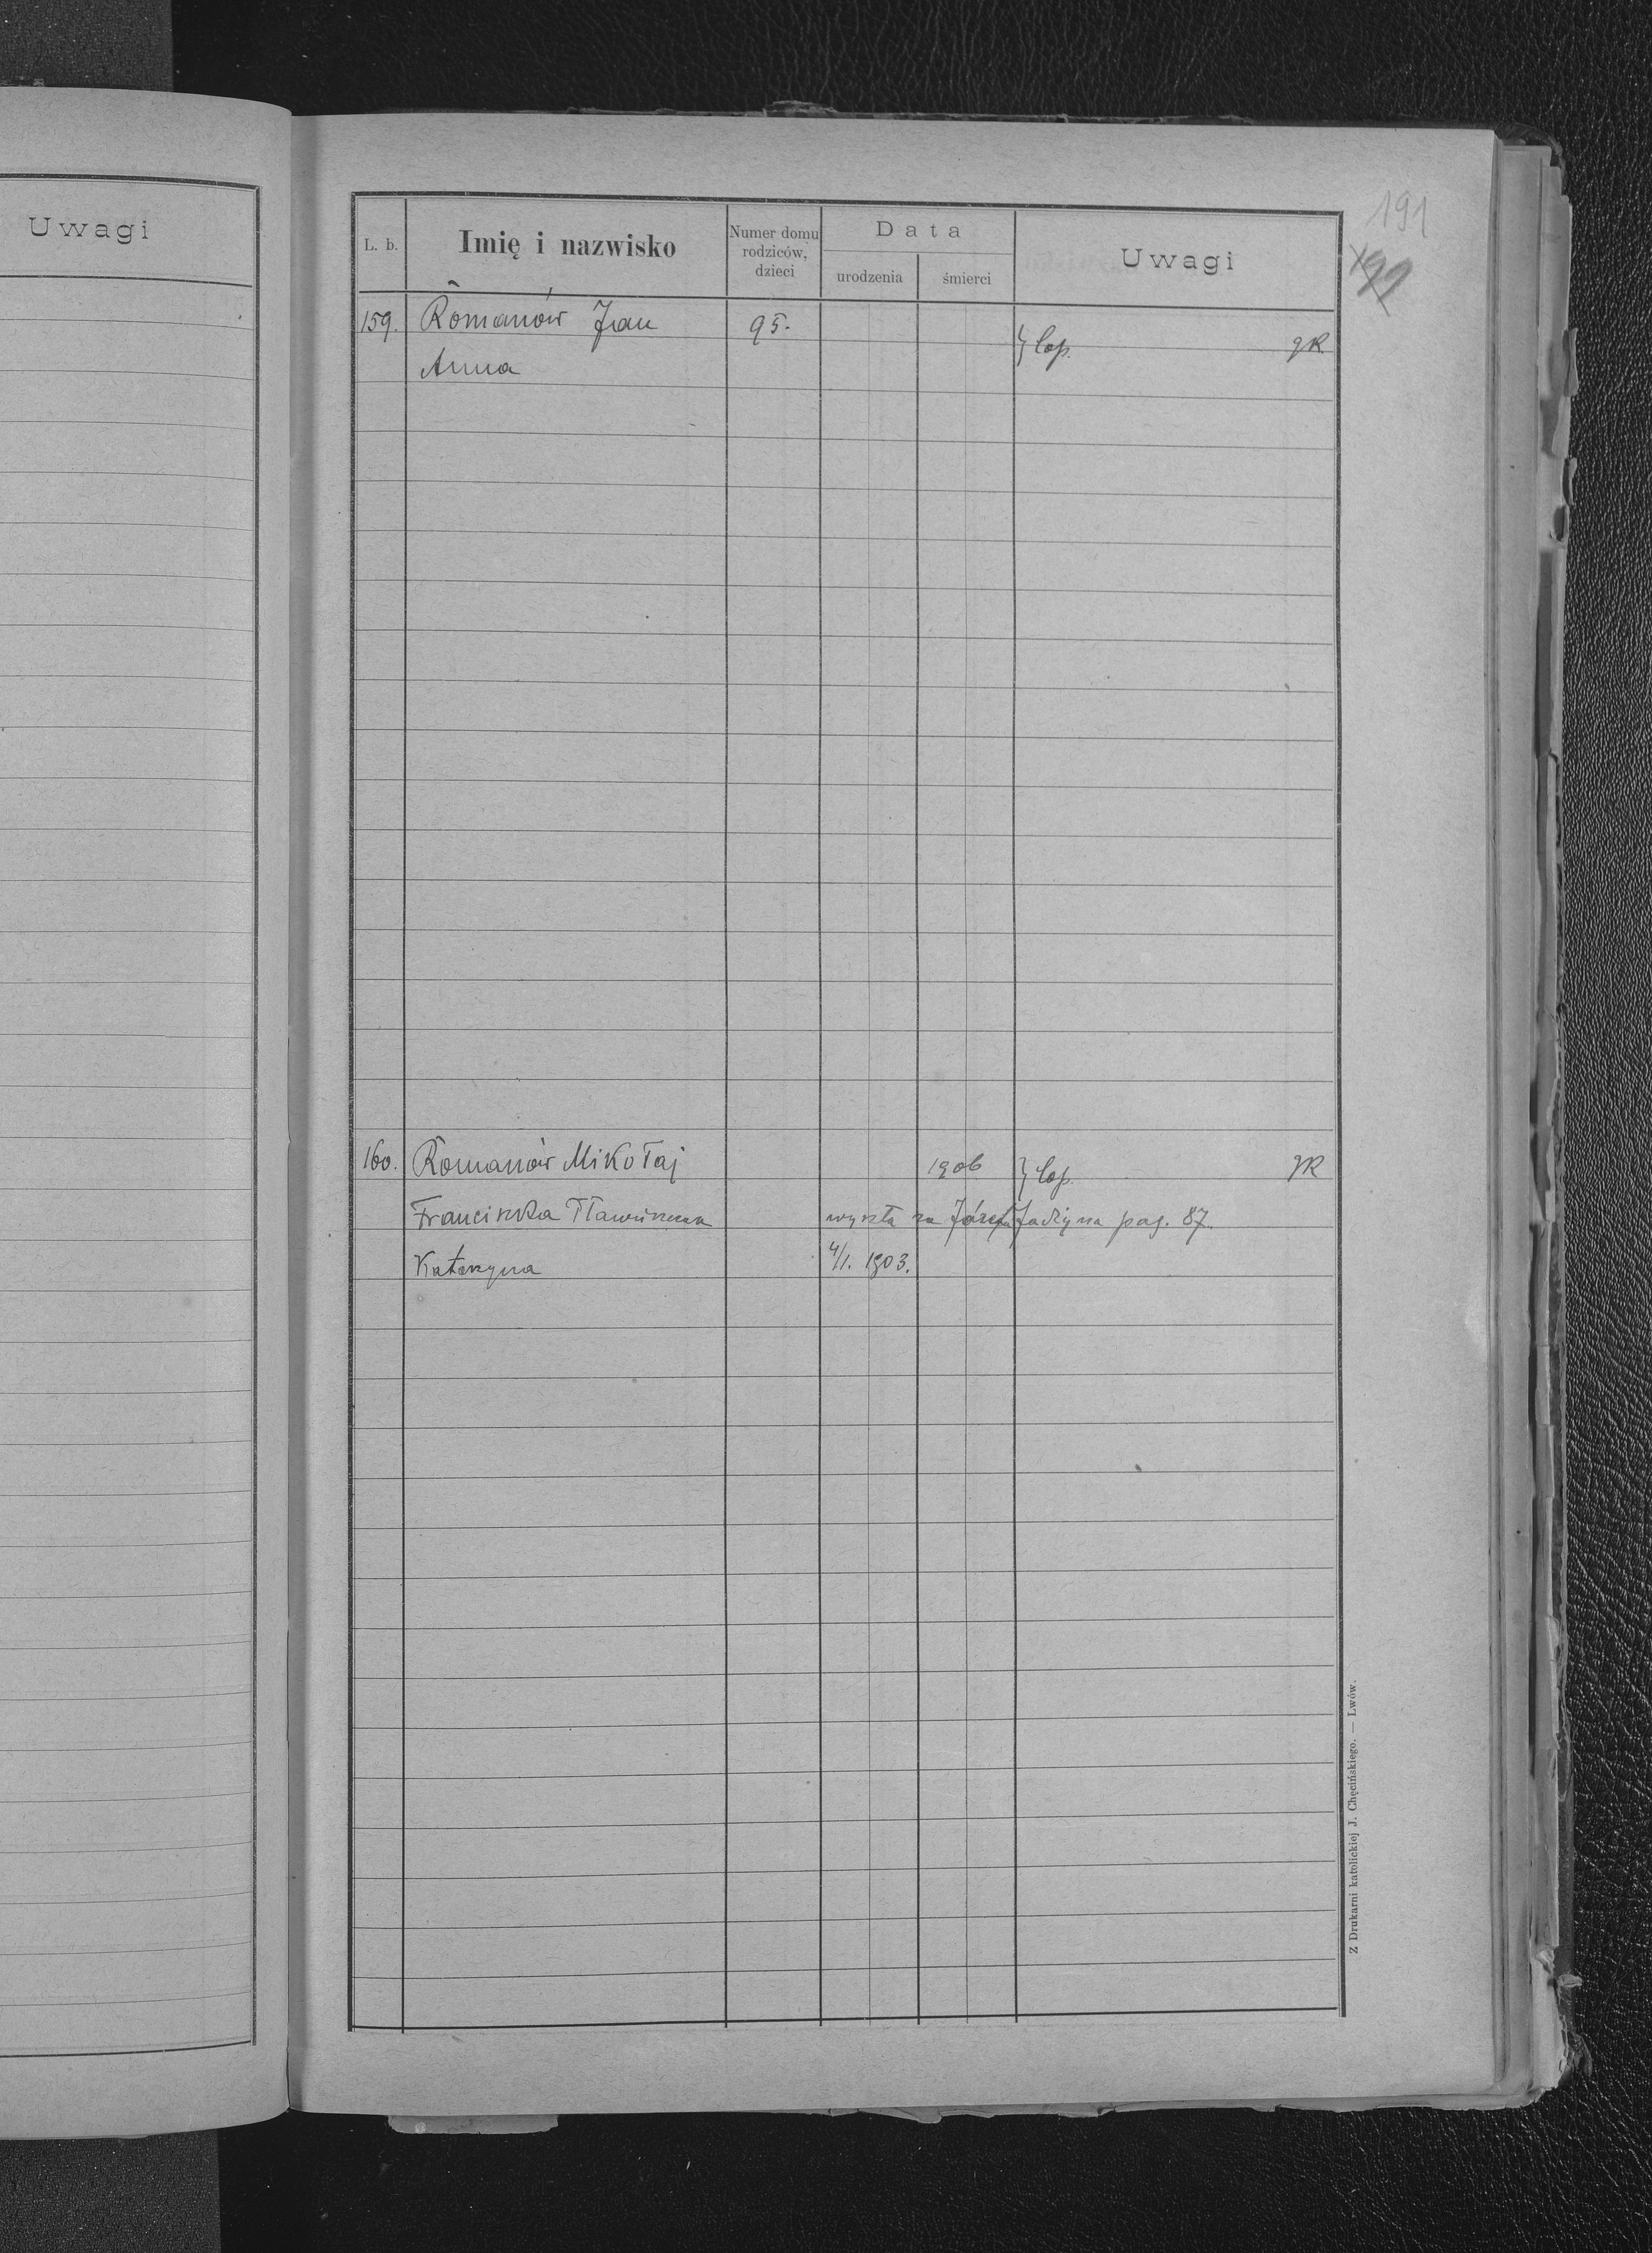 Uwagi
191
L. b. Imię i nazwisko Numer domu rodziców, dzieci Data urodzenia śmierci Uwagi
159. Romanów Jan 95.
} cop. gR
Anna
160. Romanów Mikołaj 1906 } cop. gR
Franciszka wyszła za Józefa pag. 87.
Katarzyna 4/1. 1903.
Z Drukarni katolickiej J. Chęcińskiego. — Lwów.